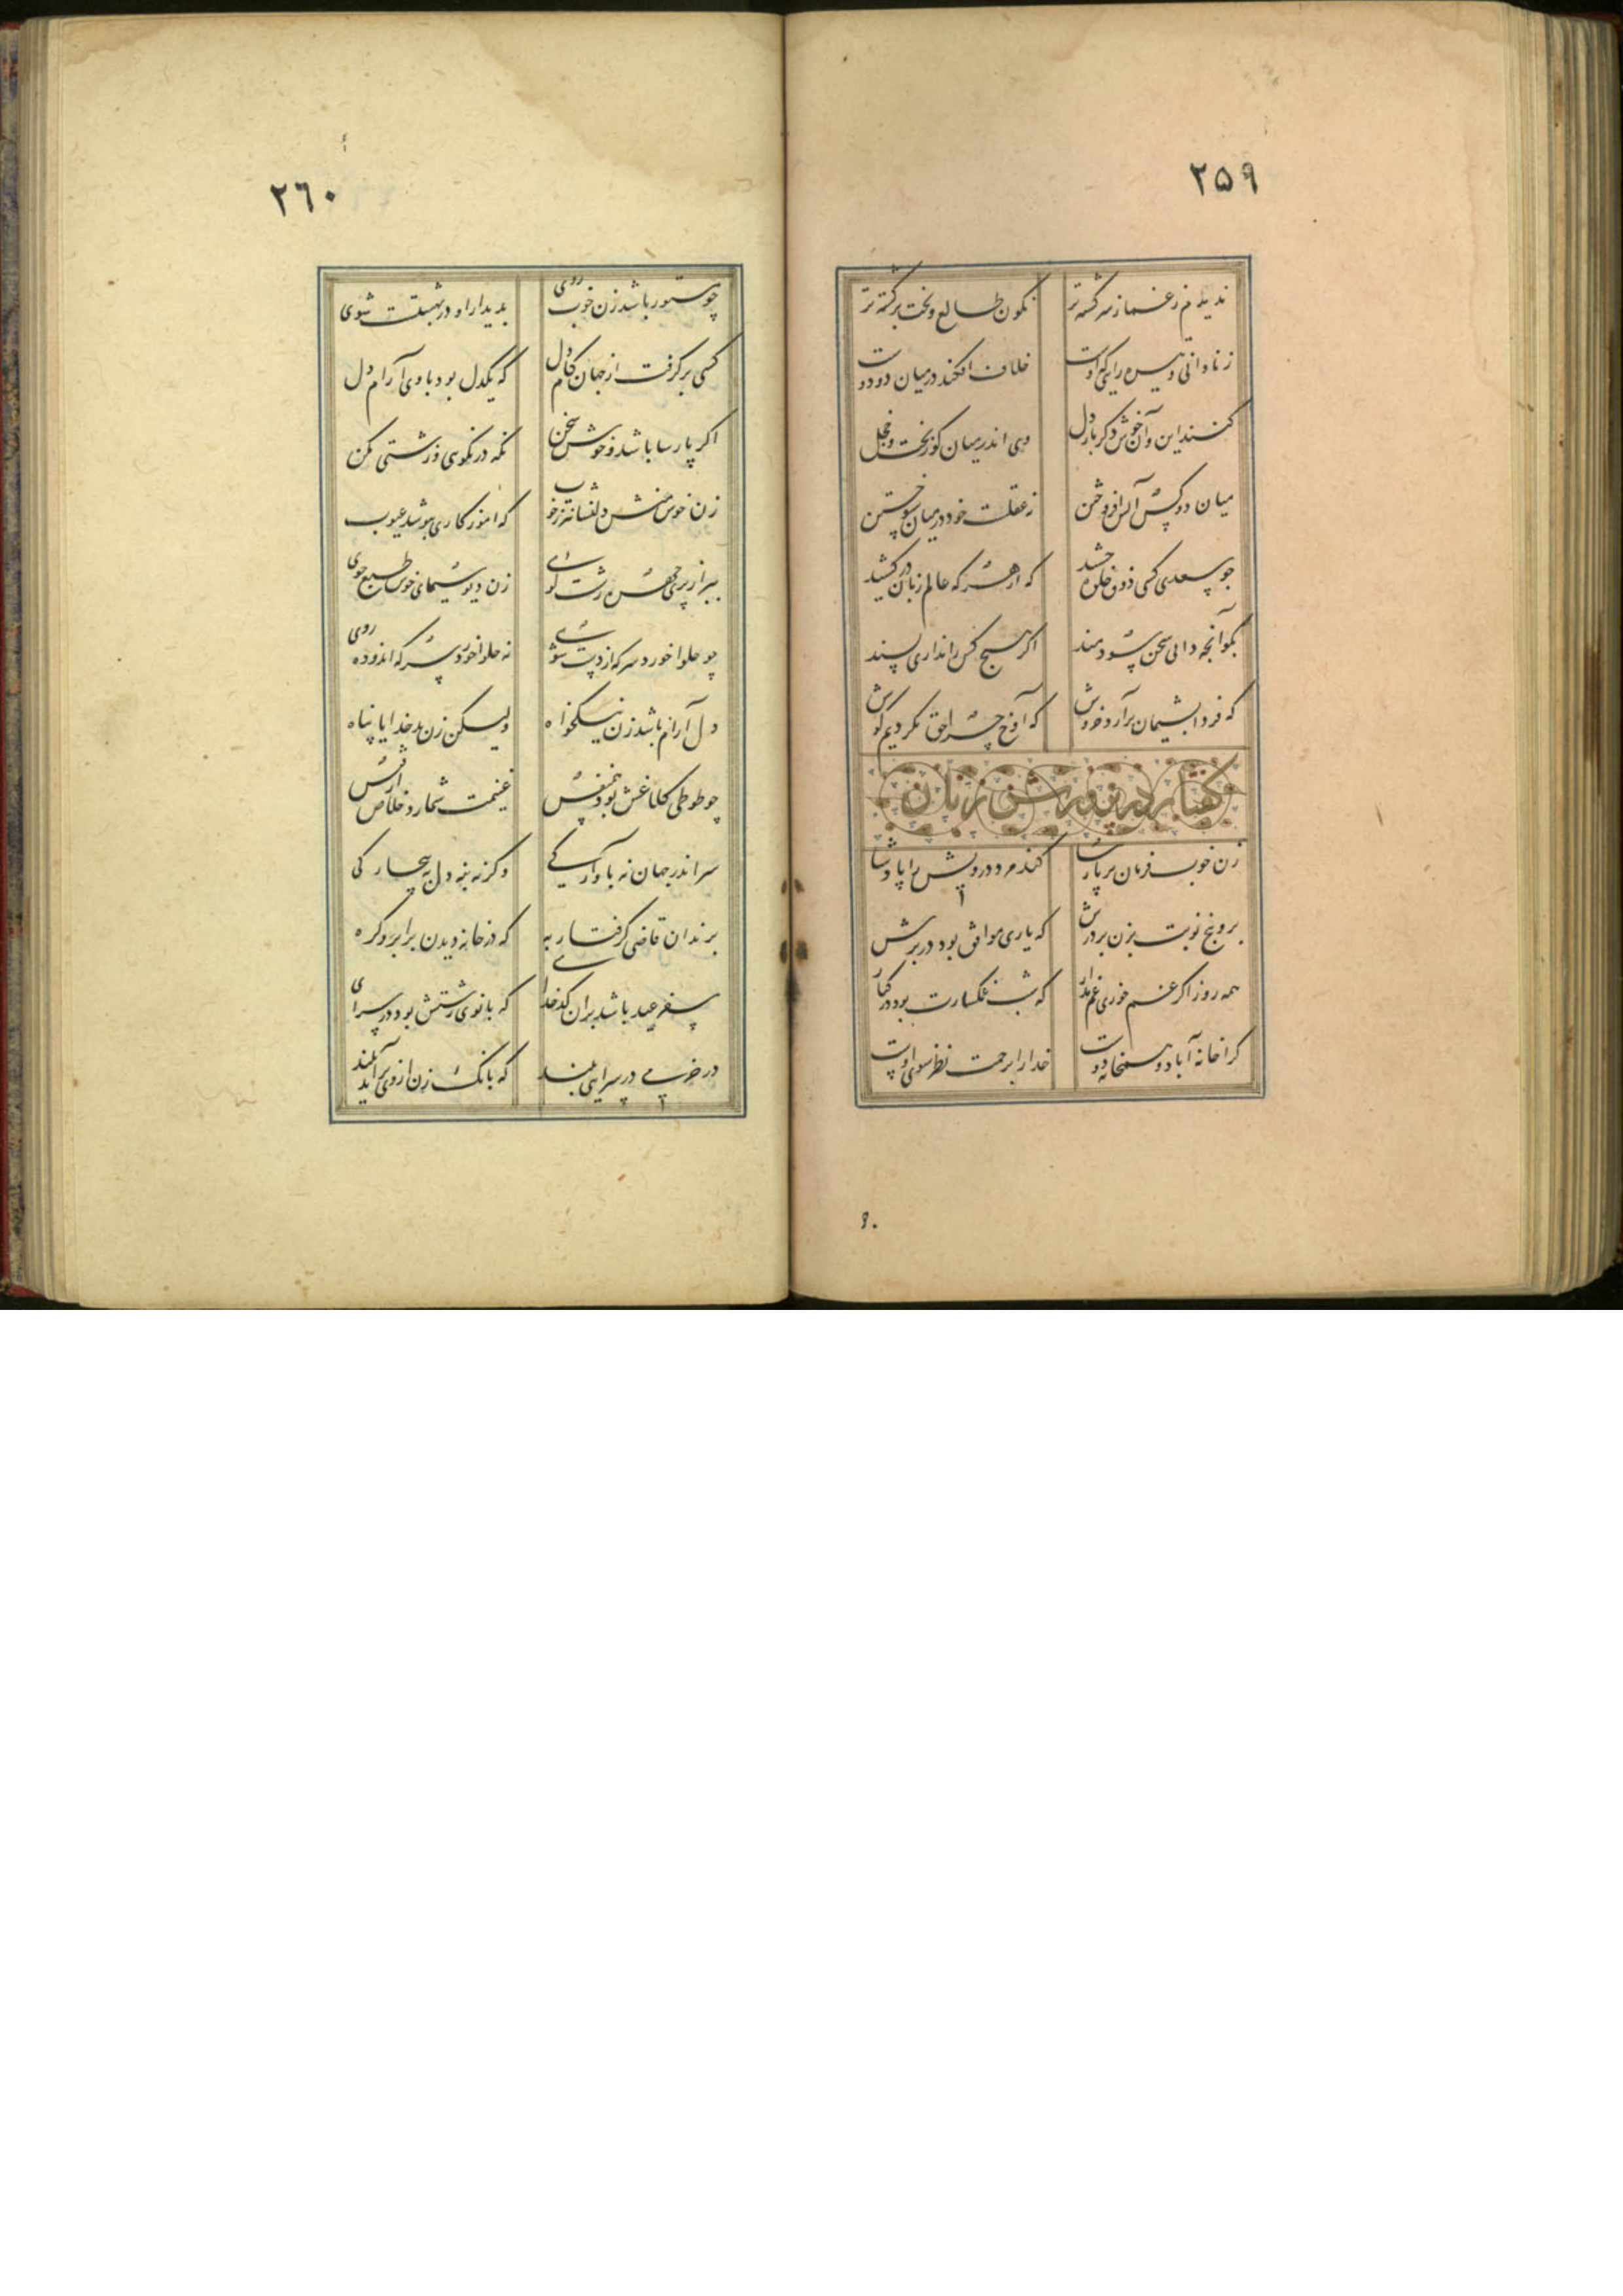 ۲۵۹
ندیدم ز غماز سرگشته‌تر نگون طالع و بخت برگشته‌تر
ز نادانی و تیره رایی که اوست خلاف افکند در میان دو دوست
کنند این و آن خوش دگر باره دل وی اندر میان کوربخت و خجل
میان دو کس آتش افروختن نه عقلست خود در میان سوختن
چو سعدی کسی ذوق خلوت چشید که از هر که عالم زبان درکشید
بگو آنچه دانی سخن سودمند اگر هیچ کس را نداری پسند
که فردا پشیمان برآرد خروش که آوخ چرا حق نکردیم گوش
گفتار در پرورش زنان
زن خوب فرمان بر پارسا کند مرد درویش را پادشا
برو پنج نوبت بزن بر درش که یاری موافق بود در برش
همه روز اگر غم خوری غم مدار که شب غمگسارت بود در کنار
کرا خانه آباد و همخانه دوست خدا را برحمت نظر سوی اوست
۲۶۰
چو مستور باشد زن خوب روی بدیدار او در بهشتست شوی
کسی برگرفت از جهان کام دل که یکدل بود با وی آرام دل
اگر پارسا باشد و خوش سخن نگه در نکوی و زشتی مکن
زن خوش منش دلنشانتر ز خوب که آمیزگاری بپوشد عیوب
ببرد از پری چهره زشت خوی زن دیو سیمای خوش طبع جوی
چو حلوا خورد سرکه از دست شوی نه حلوا خورد سرکه اندوده روی
دل آرام باشد زن نیکخواه ولیکن زن بد خدایا پناه
چو طوطی کلاغش بود همنفس غنیمت شمارد خلاص از قفس
سر اندر جهان نه بآوارگی وگرنه بنه دل به بیچارگی
بزندان قاضی گرفتار به که در خانه دیدن بر ابرو گره
سفر عید باشد بران کدخدای که بانوی زشتش بود در سرای
در خرمی در سرایی ببند که بانگ زن از وی برآید بلند
۹۰